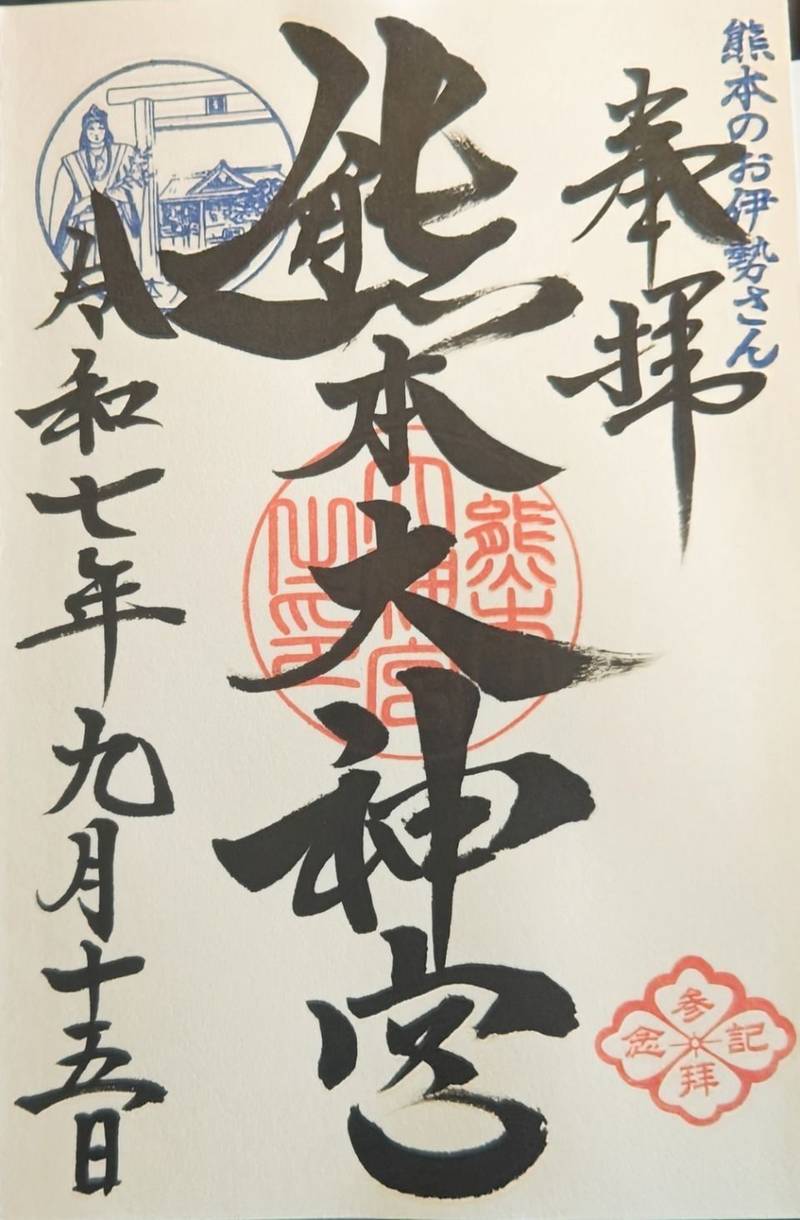 熊本のお伊勢さん
奉拝
熊本大神宮
熊本
大神宮
之印
令和七年九月十五日
参拝
記念